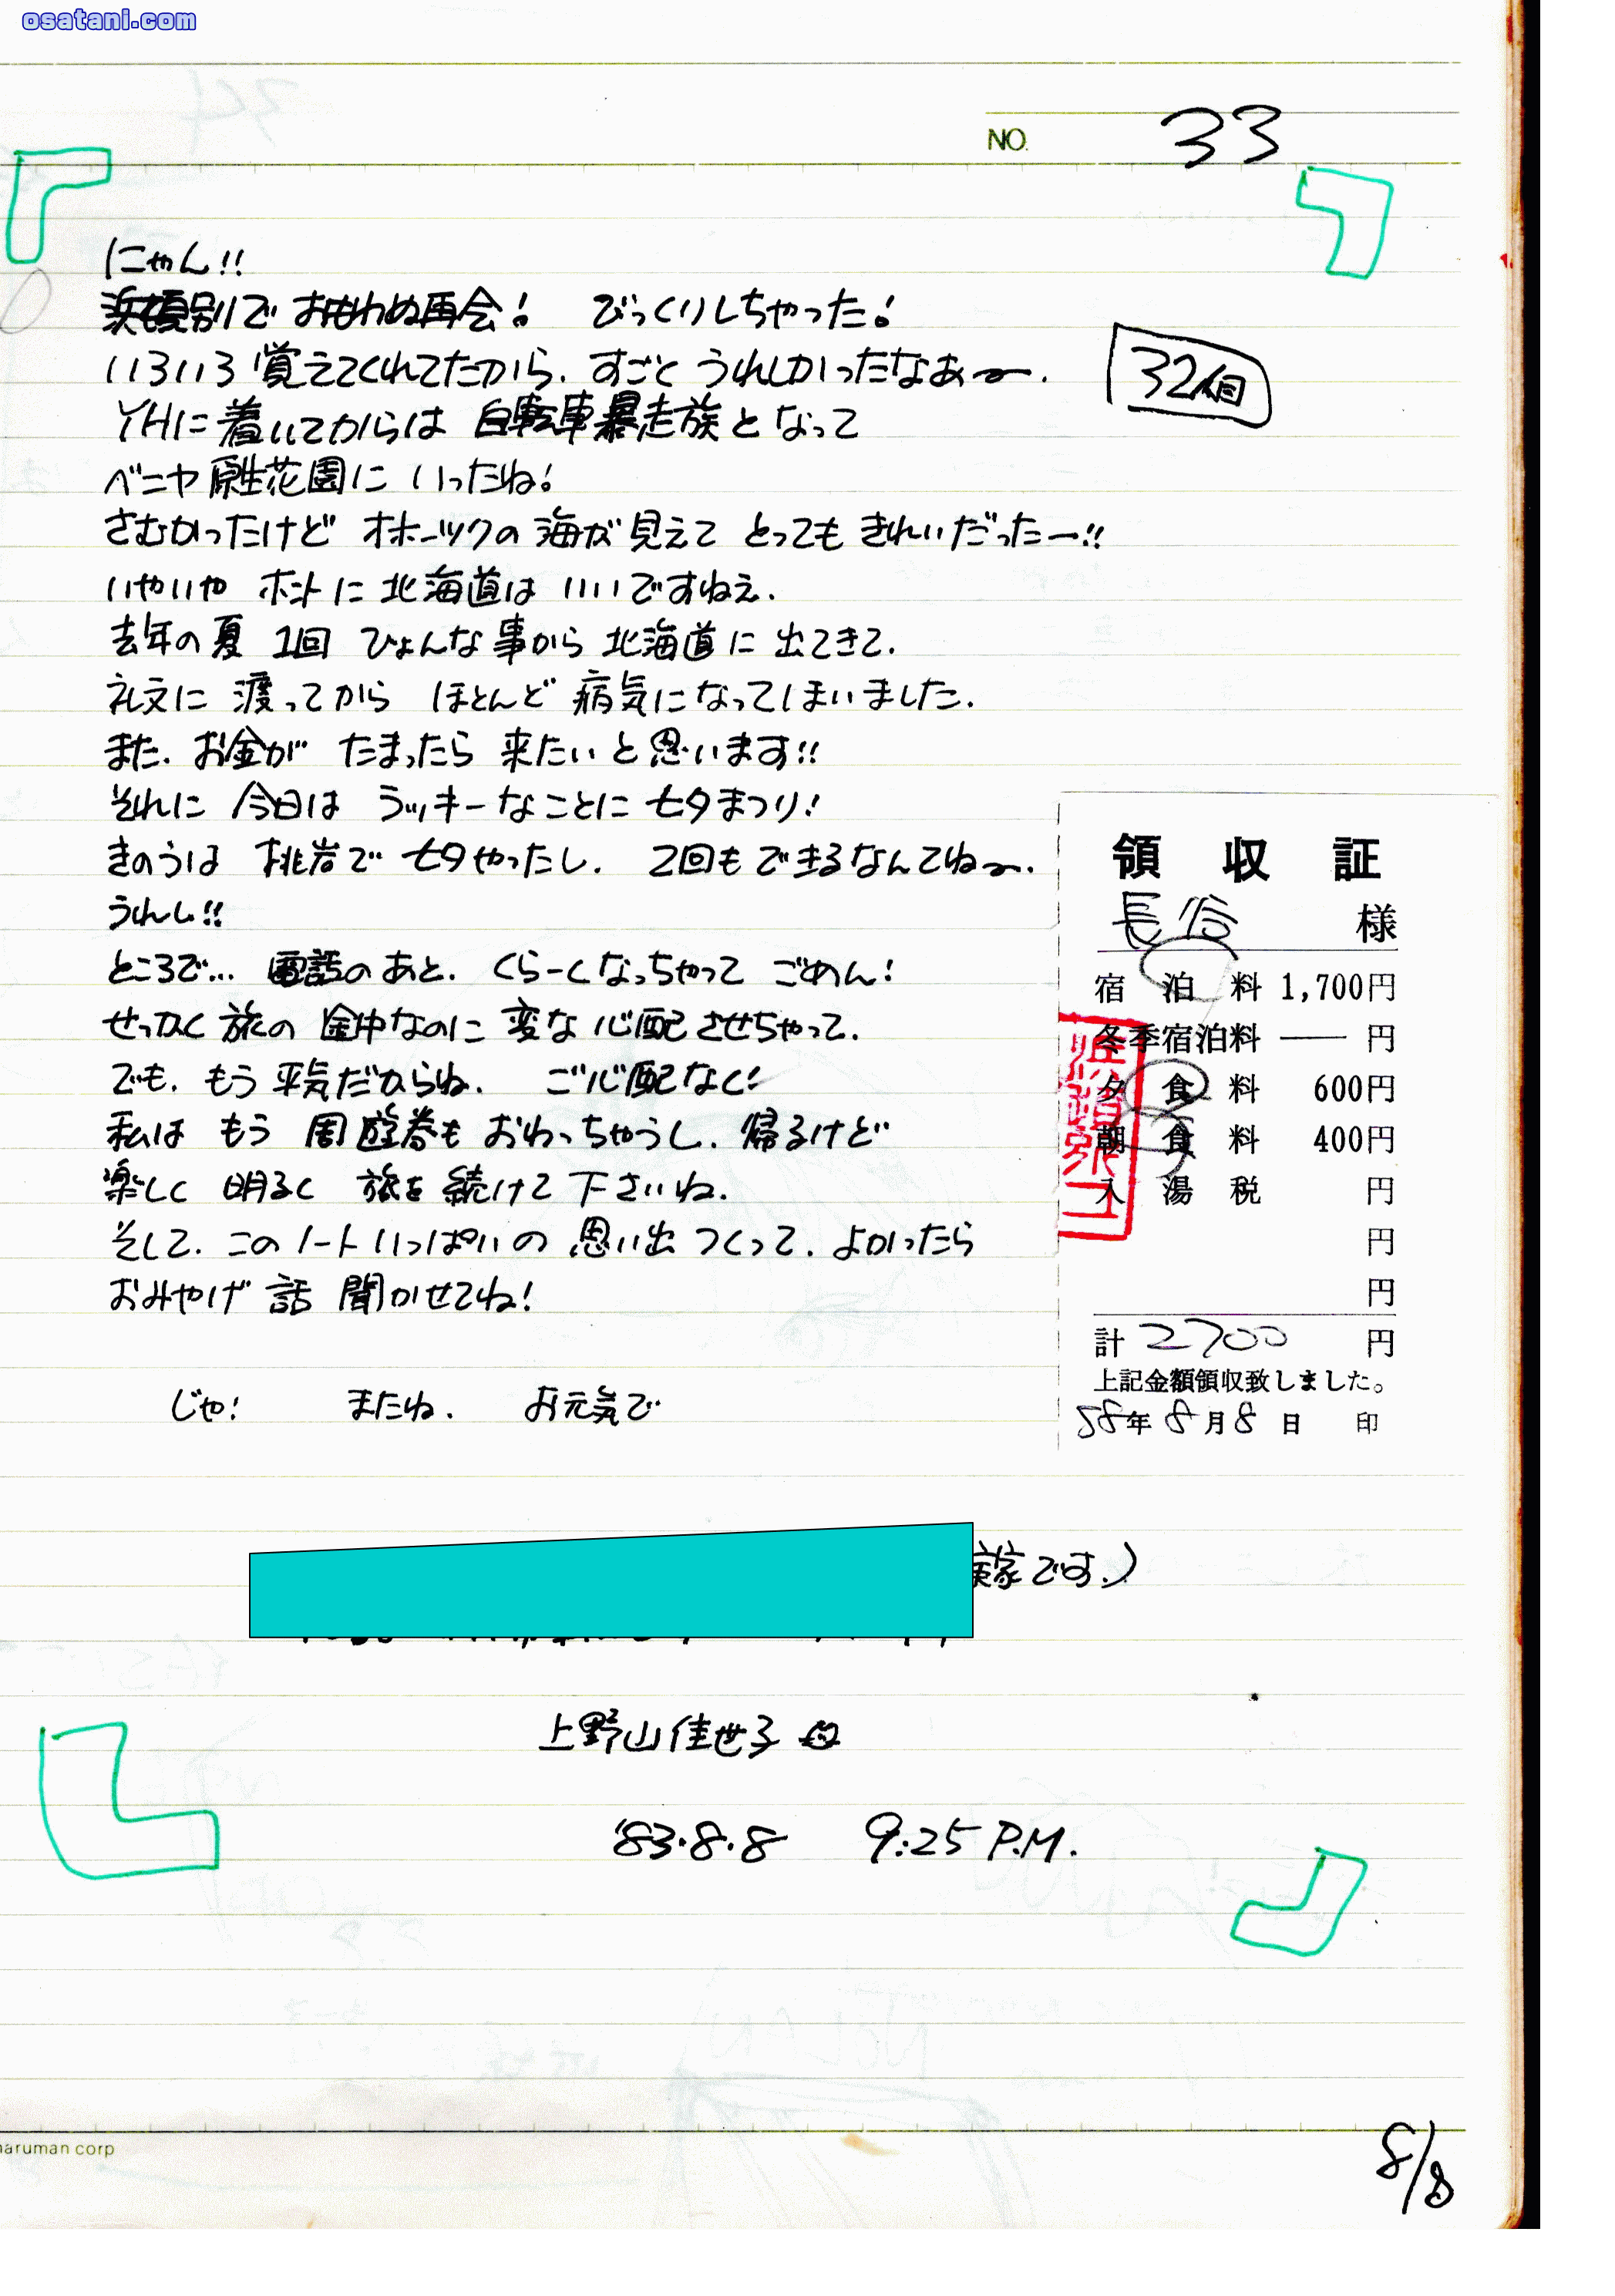 osatani.com
NO. 33
にゃん!!
浜頓別で おもわぬ再会! びっくりしちゃった!
いろいろ覚えてくれてたから. すごく うれしかったなあ〜.
32個
YHに着いてからは 自転車暴走族となって
ベニヤ原生花園に いったね!
さむかったけど オホーツクの海が見えて とってもきれいだったー!!
いやいや ホントに北海道は いいですねえ.
去年の夏 1回 ひょんな事から 北海道に出てきて.
礼文に 渡ってから ほとんど病気になってしまいました.
また. お金が たまったら 来たいと思います!!
それに 今日は ラッキーなことに七夕まつり!
きのうは 桃岩で 七夕やったし. 2回もできるなんてね〜.
うれし!!
ところで… 電話のあと. くらーくなっちゃって ごめん!
せっかく旅の 途中なのに 変な心配させちゃって.
でも. もう平気だからね. ご心配なく!
私は もう 周遊巻も おわっちゃうし. 帰るけど
楽しく 明るく 旅を続けて下さいね.
そして. このノートいっぱいの 思い出つくって. よかったら
おみやげ話 聞かせてね!
じゃ! またね. お元気で
領収証
長谷 様
宿泊料 1,700円
冬季宿泊料 ―― 円
夕食料 600円
朝食料 400円
入湯税 円
円
円
計 2700 円
上記金額領収致しました。
58年8月8日 印
実家です.)
上野山佳世子
'83.8.8 9:25 P.M.
maruman corp
8/8